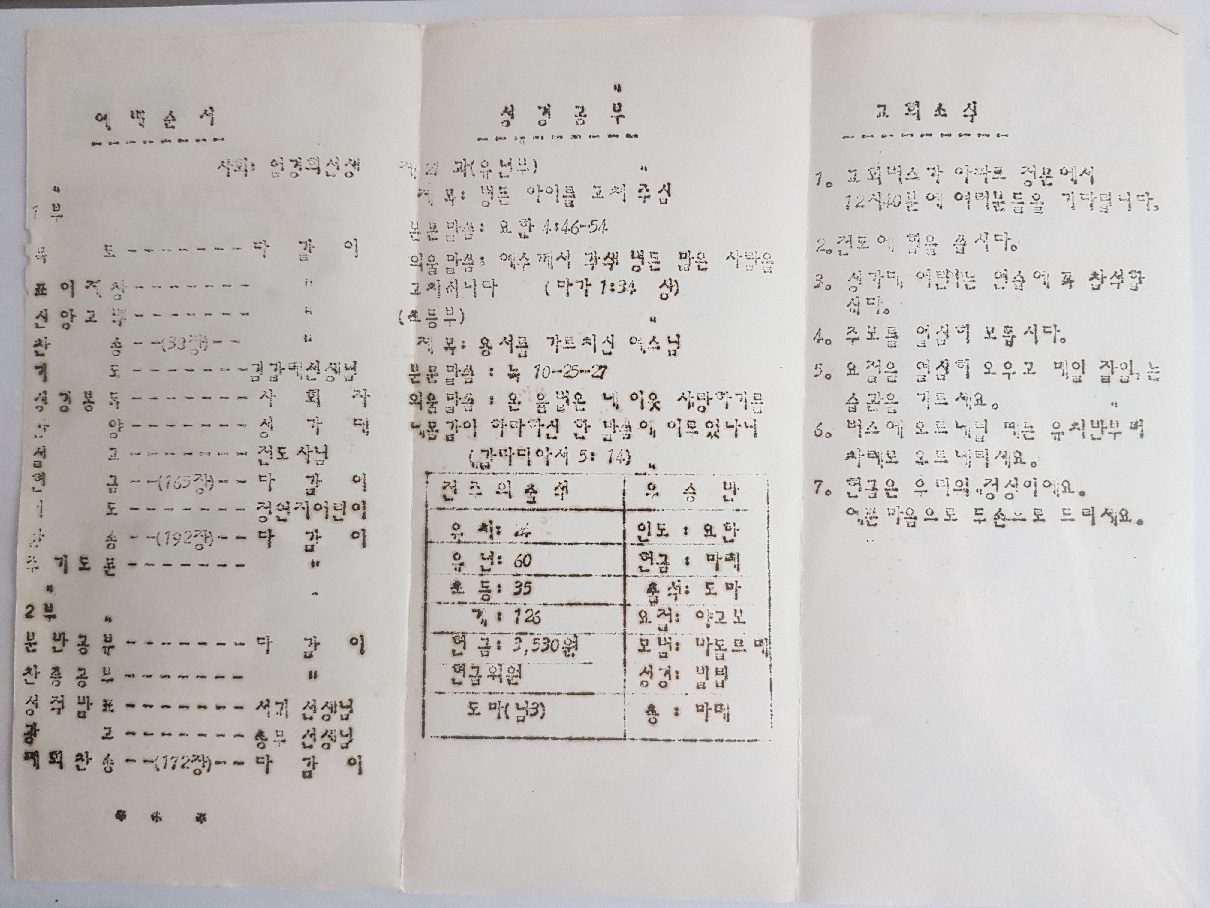 예배순서
사회: 엄경희선생
1부
묵 도 ------- 다 같 이
표어제창 ------- "
신앙고백 ------- "
찬 송 --(33장)-- "
기 도 ------- 김갑택선생님
성경봉독 ------- 사 회 자
찬 양 ------- 성 가 대
설 교 ------- 전도사님
헌 금 --(163장)-- 다 같 이
기 도 ------- 정연지어린이
찬 송 --(192장)-- 다 같 이
주기도문 ------- "
2부
분반공부 ------- 다 같 이
찬송공부 ------- "
성주발표 ------- 서기 선생님
광 고 ------- 총무 선생님
폐회찬송 --(172장)-- 다 같 이
* * *
성경공부
과(유년부)
제 목: 병든 아이를 고쳐 주심
본문말씀: 요한 4:46-54
외울말씀: 예수께서 각색 병든 많은 사람을
고치시니다 (마가 1:34 상)
(초등부)
제 목: 용서를 가르치신 예수님
본문말씀 : 눅 10-25-27
외울말씀 : 온 율법은 네 이웃 사랑하기를
네몸같이 하라하신 한 말씀에 이르었나니
(갈라디아서 5: 14)
전주의출석 우 승 반
유 치: 인도 : 요한
유 년: 60 헌금 : 마태
초 등: 35 출석: 도마
계: 126 요절: 야고보
헌 금: 3,530원 모범: 바돌로매
헌금위원 성경: 빌립
도 마(남3) 총 : 마태
교회소식
1. 교회버스가 아파트 정문에서
12시40분에 여러분들을 기다립니다.
2. 전도에 힘을 씁시다.
3. 성가대 어린이는 연습에 꼭 참석합
시다.
4. 주보를 열심히 모읍시다.
5. 요절을 열심히 외우고 매일 읽는
습관을 기르세요.
6. 버스에 오르내릴 때는 유치반부터
차례로 오르내리세요.
7. 헌금은 우리의 정성이에요.
예쁜마음으로 두손으로 드리세요.